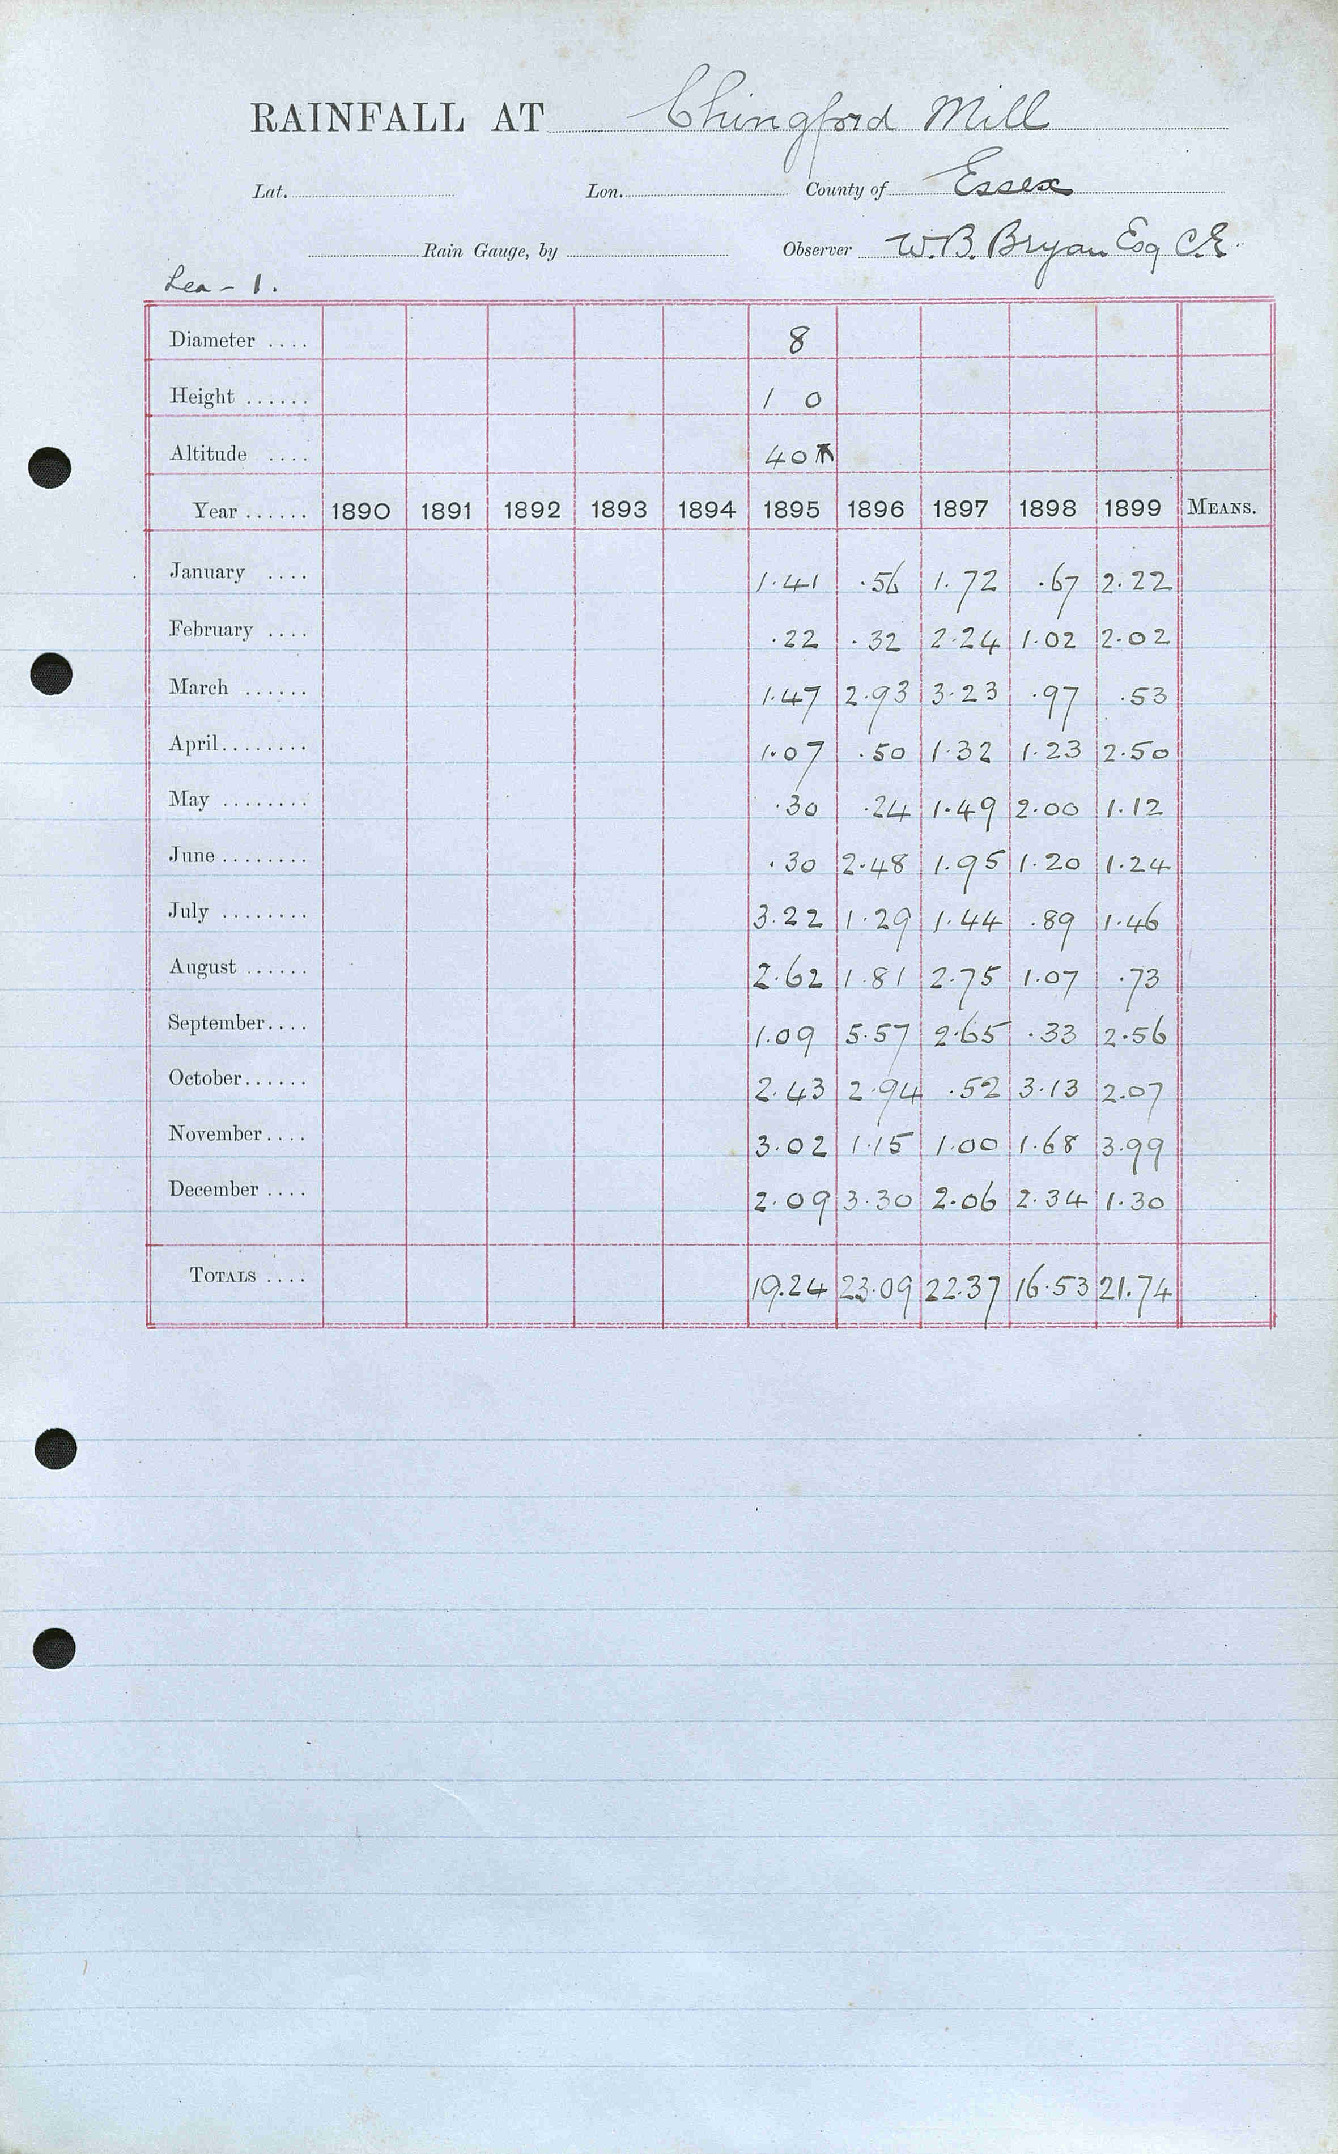 RAINFALL AT Chingford Mill
Lat. Lon. County of Essex
Rain Gauge, by Observer W.B. Bryan Esq C.E.
Lea - 1.
Diameter .... 8
Height ...... 1 0
Altitude .... 40
Year ...... 1890 1891 1892 1893 1894 1895 1896 1897 1898 1899 MEANS.
January .... 1.41 .56 1.72 .67 2.22
February .... .22 .32 2.24 1.02 2.02
March ...... 1.47 2.93 3.23 .97 .53
April........ 1.07 .50 1.32 1.23 2.50
May ........ .30 .24 1.49 2.00 1.12
June ........ .30 2.48 1.95 1.20 1.24
July ........ 3.22 1.29 1.44 .89 1.46
August ...... 2.62 1.81 2.75 1.07 .73
September.... 1.09 5.57 2.65 .33 2.56
October...... 2.43 2.94 .52 3.13 2.07
November.... 3.02 1.15 1.00 1.68 3.99
December .... 2.09 3.30 2.06 2.34 1.30
TOTALS .... 19.24 23.09 22.37 16.53 21.74